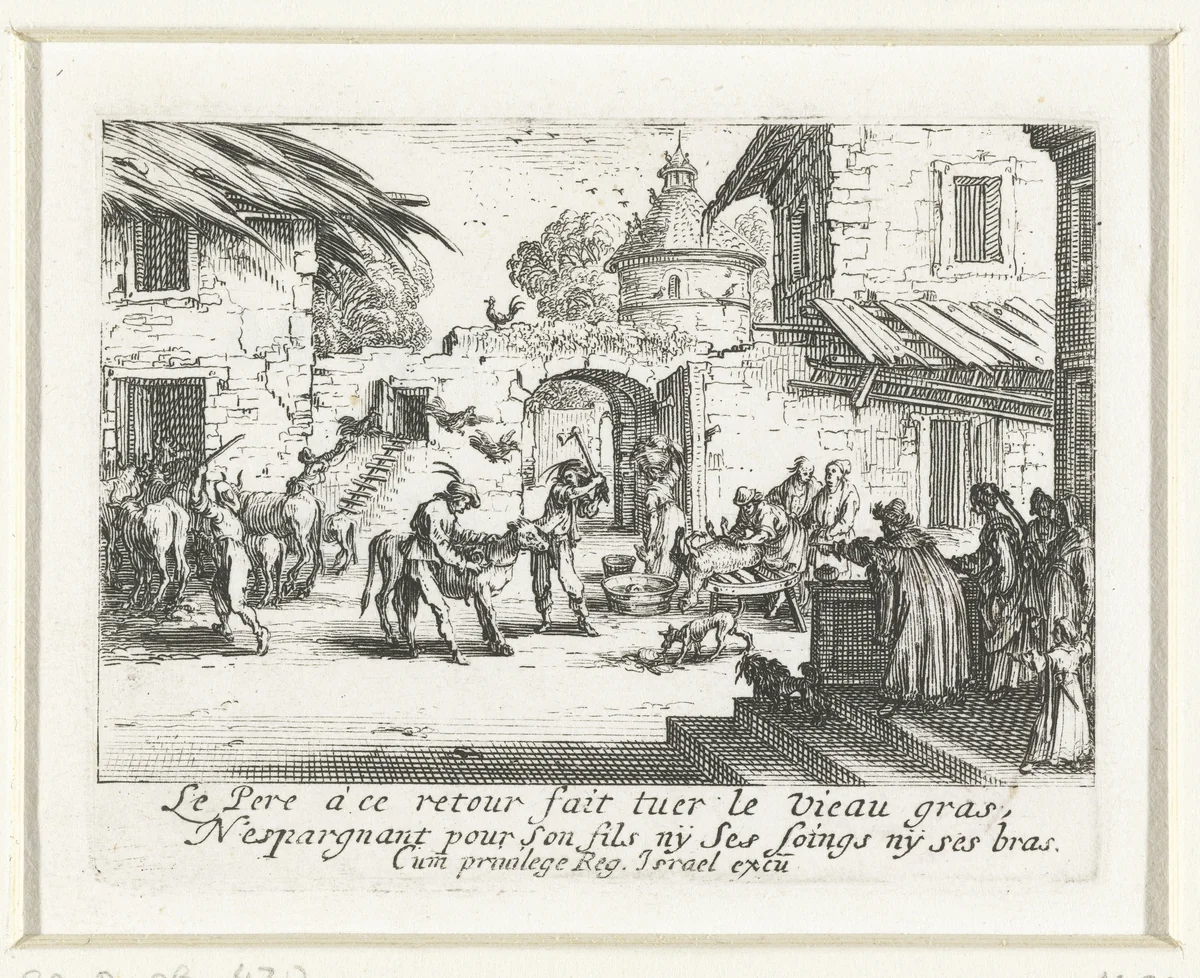 Le Pere a' ce retour fait tuer le vieau gras,
N'espargnant pour son fils nÿ Ses soings nÿ ses bras.
Cum priuilege Reg. Israel excū